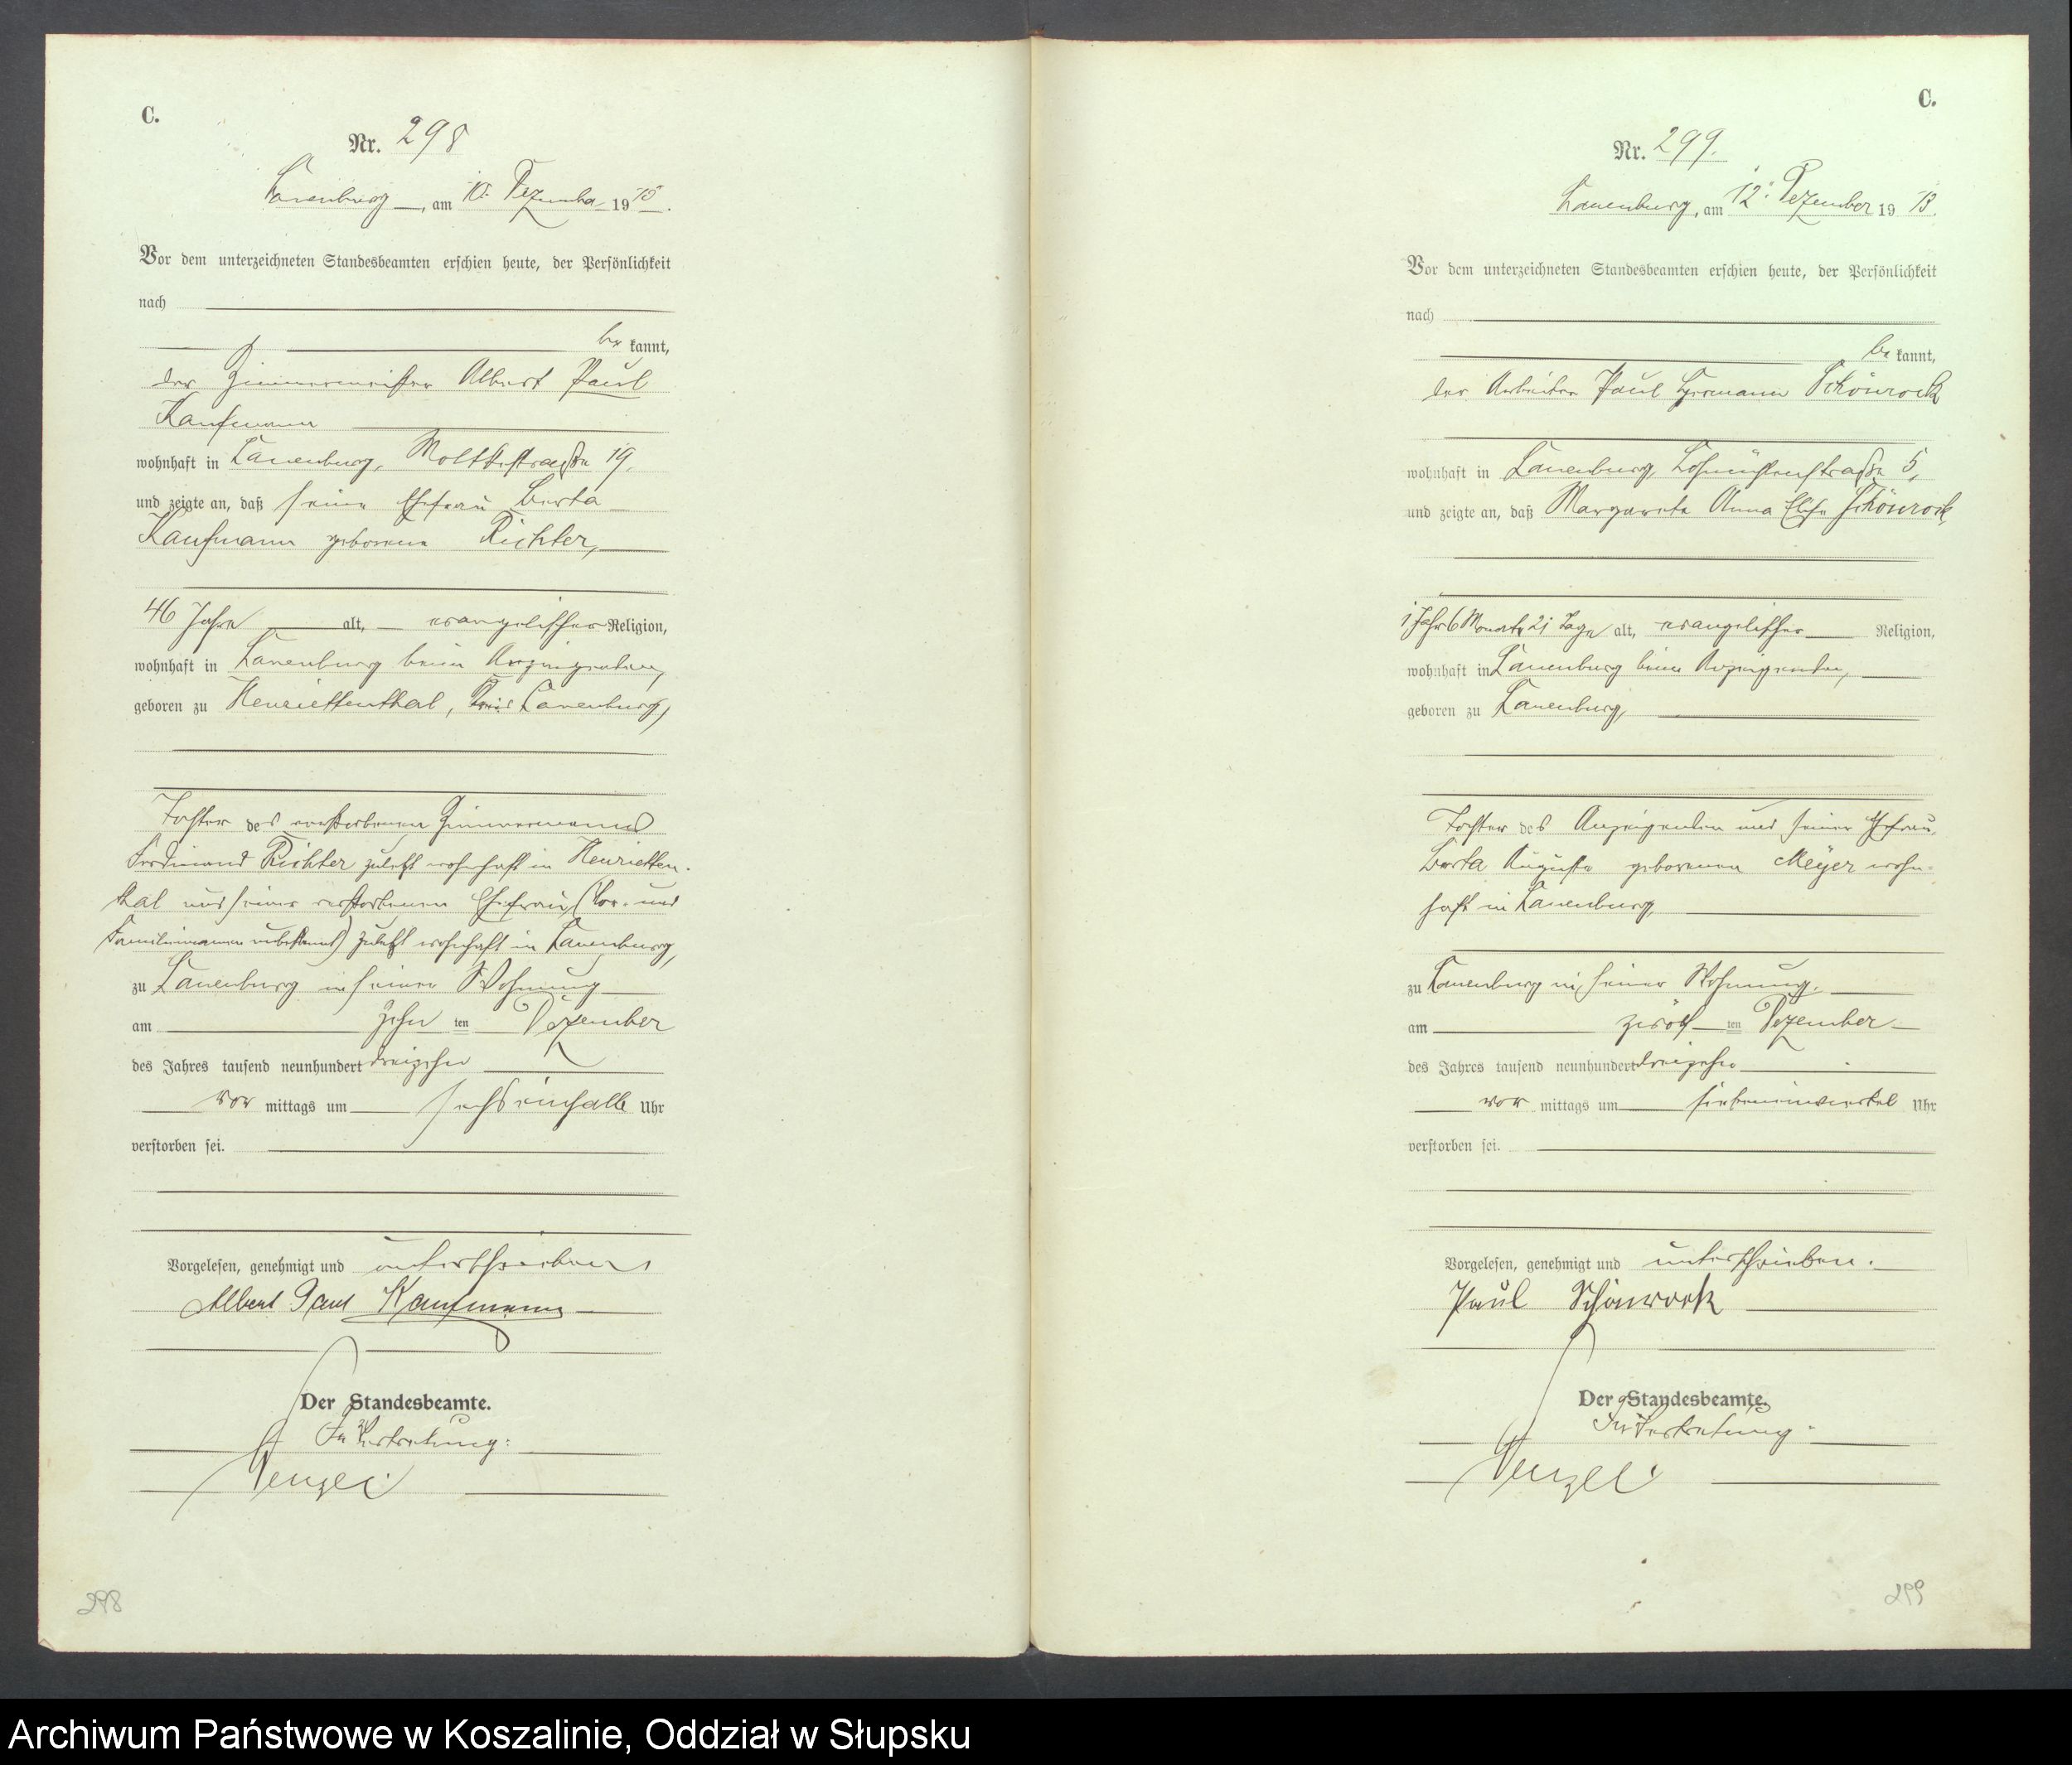 C.
Nr. 298
Lauenburg, am 10. Dezember 1913.
Vor dem unterzeichneten Standesbeamten erschien heute, der Persönlichkeit
nach
be kannt,
der Zimmermeister Albert Paul
Kaufmann
wohnhaft in Lauenburg, Moltkestraße 19,
und zeigte an, daß seine Ehefrau Berta
Kaufmann geborene Richter,
46 Jahre alt, evangelischer Religion,
wohnhaft in Lauenburg beim Anzeigenden,
geboren zu Henriettenthal, Kreis Lauenburg,
Tochter des verstorbenen Zimmermanns
Ferdinand Richter zuletzt wohnhaft in Henrietten-
thal und seiner verstorbenen Ehefrau (Vor- und
Familiennamen unbekannt) zuletzt wohnhaft in Lauenburg,
zu Lauenburg in seiner Wohnung
am zehn ten Dezember
des Jahres tausend neunhundert dreizehn
vor mittags um sechseinhalb Uhr
verstorben sei.
Vorgelesen, genehmigt und unterschrieben
Albert Paul Kaufmann
Der Standesbeamte.
In Vertretung:
Wenzel
298
C.
Nr. 299.
Lauenburg, am 12. Dezember 1913.
Vor dem unterzeichneten Standesbeamten erschien heute, der Persönlichkeit
nach
be kannt,
der Arbeiter Paul Hermann Schönrock
wohnhaft in Lauenburg, Lohmühlenstraße 5,
und zeigte an, daß Margarete Anna Elise Schönrock,
1 Jahr 6 Monate 21 Tage alt, evangelischer Religion,
wohnhaft in Lauenburg beim Anzeigenden,
geboren zu Lauenburg,
Tochter des Anzeigenden und seiner Ehefrau
Berta Auguste geborenen Meyer wohn-
haft in Lauenburg,
zu Lauenburg in seiner Wohnung,
am zwölf ten Dezember
des Jahres tausend neunhundert dreizehn
vor mittags um siebeneinviertel Uhr
verstorben sei.
Vorgelesen, genehmigt und unterschrieben.
Paul Schönrock
Der Standesbeamte.
In Vertretung:
Wenzel
299
Archiwum Państwowe w Koszalinie, Oddział w Słupsku